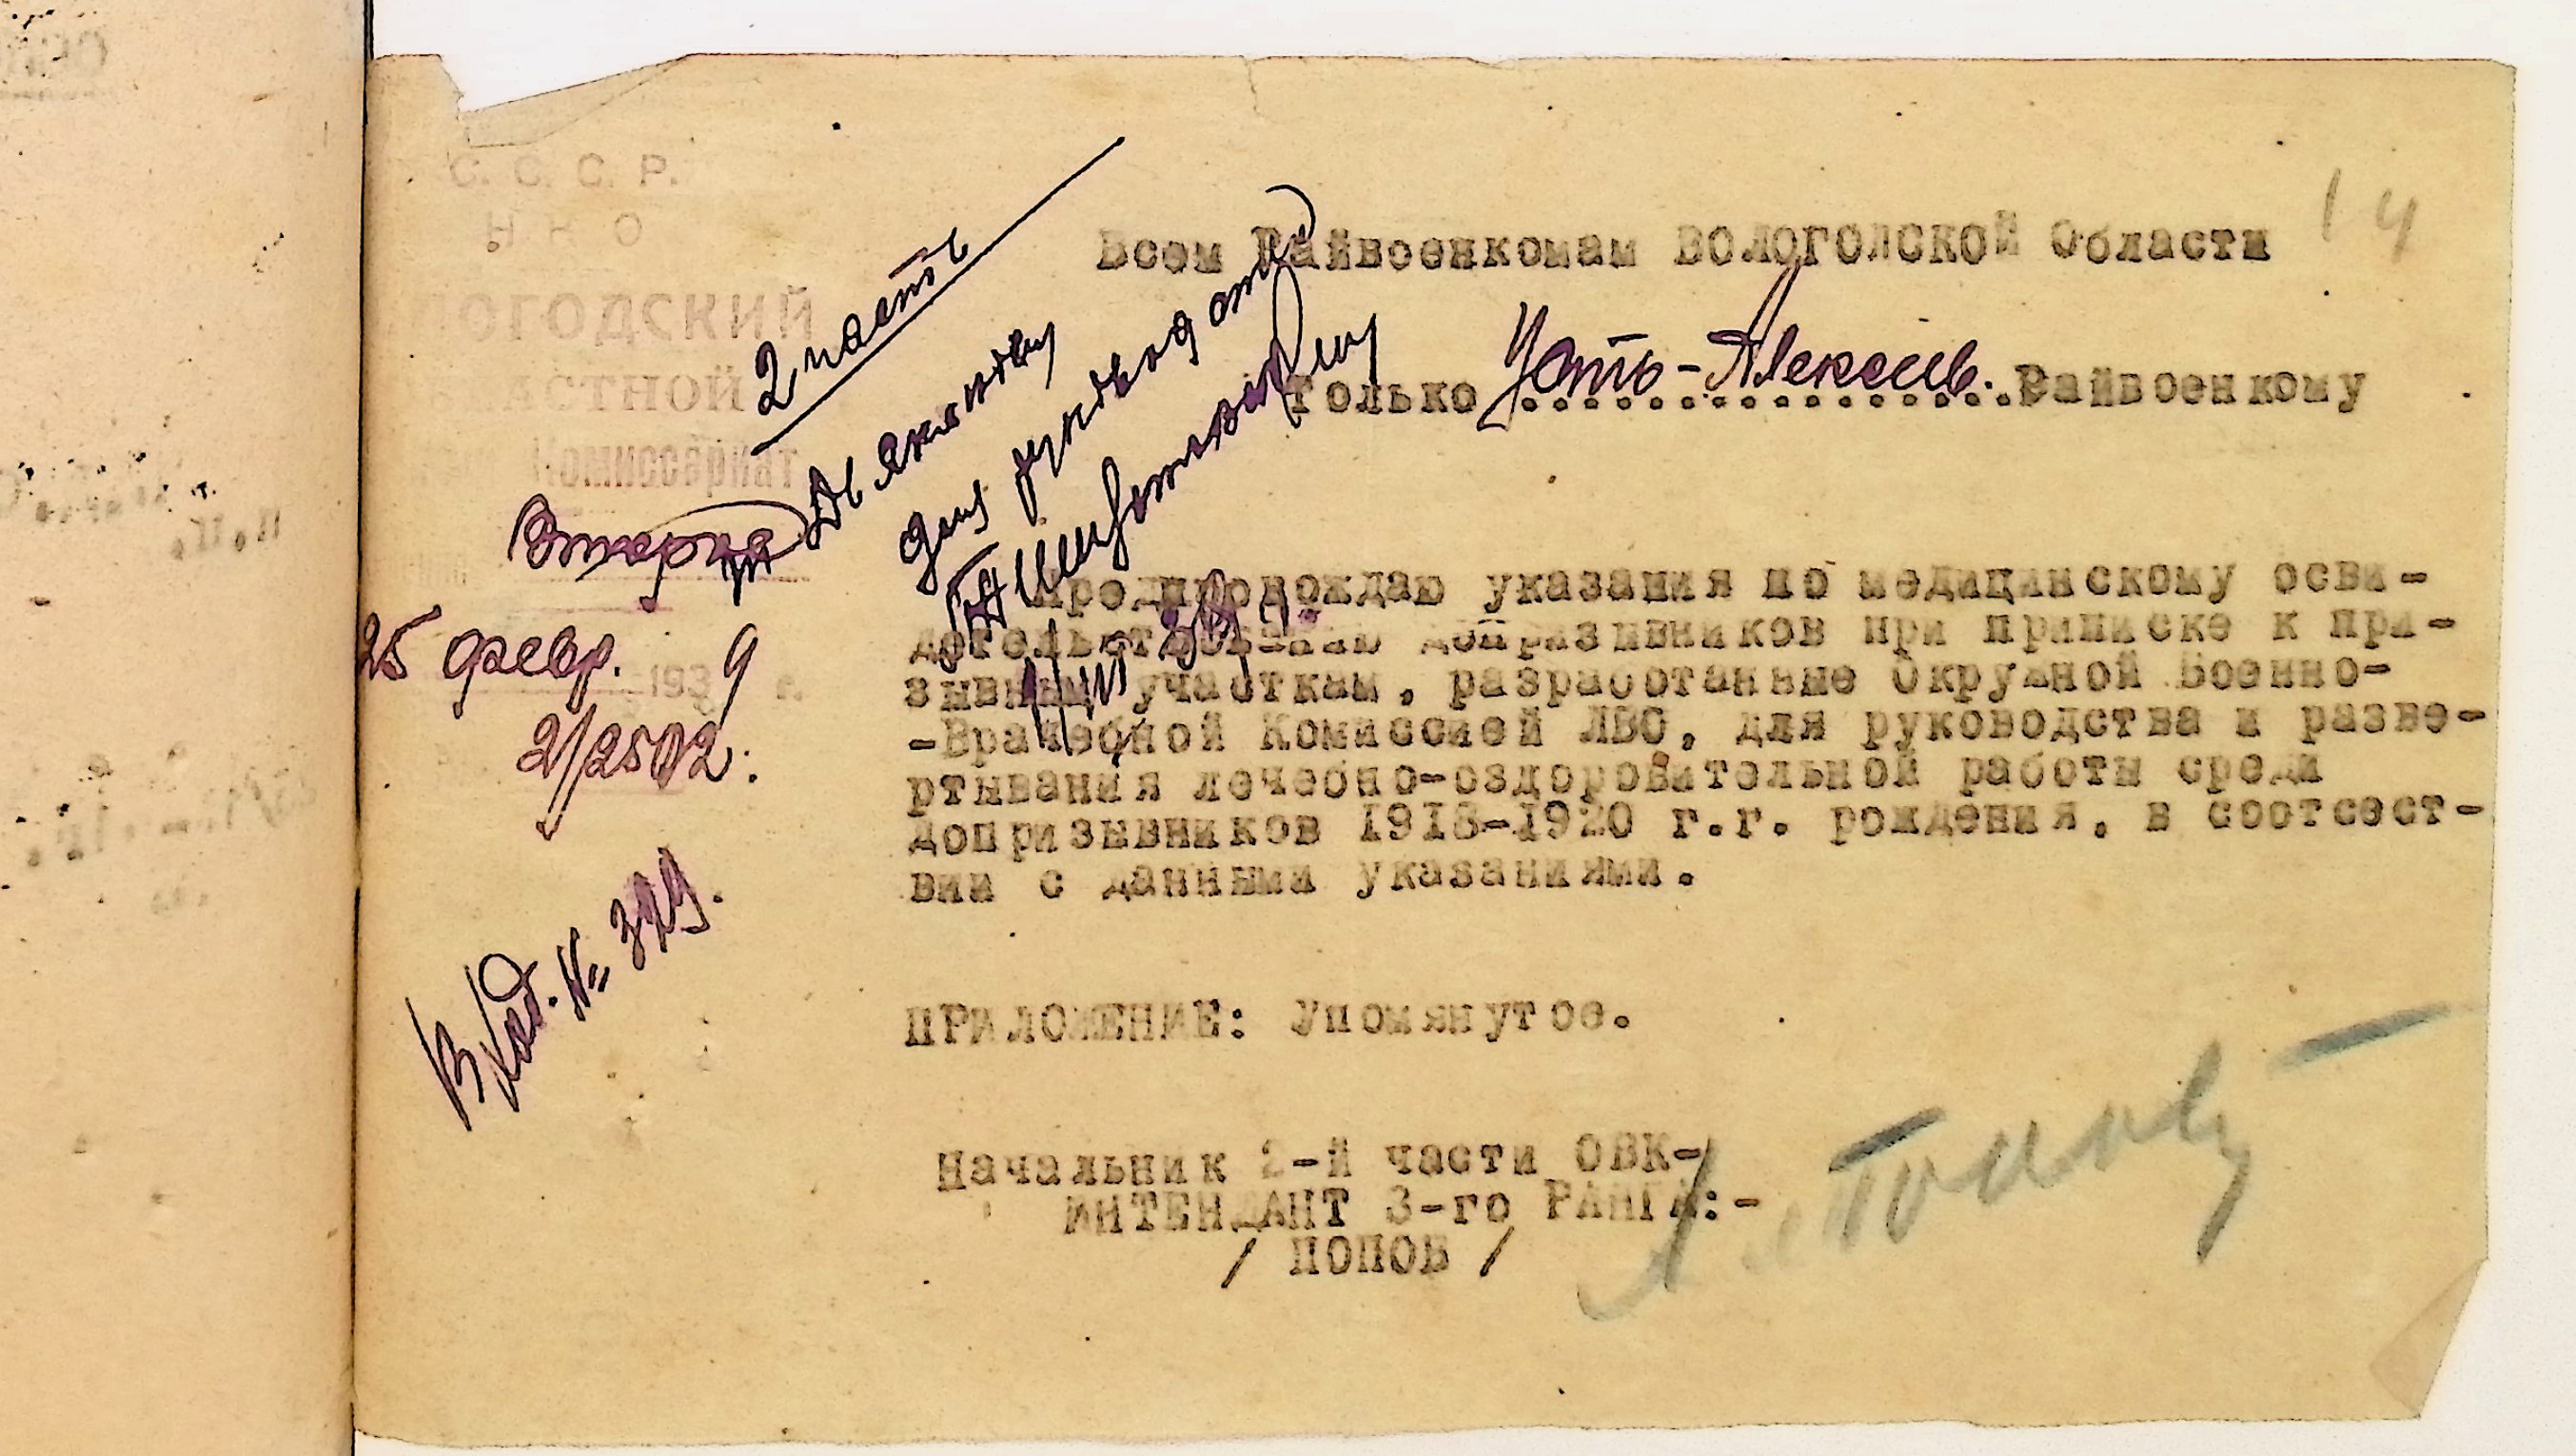 С. С. С. Р.
Н К О
ОГОДСКИЙ
АСТНОЙ
Комиссариат
Вторая
25 февр. 1939 г.
2/2502.
Вход. №
2 часть
Дьяконову
для руковод
14
Всем Райвоенкомам ВОЛОГОДСКОЙ Области
Только Усть-Алексеев. Райвоенкому
Предпровождаю указания по медицинскому осви-
детельствованию допризывников при приписке к при-
зывным участкам, разработанные Окружной Военно-
-Врачебной Комиссией ЛВО, для руководства и разве-
ртывания лечебно-оздоровительной работы среди
допризывников 1918-1920 г.г. рождения, в соотсест-
вии с данными указаниями.
ПРИЛОЖЕНИЕ: Упомянутое.
Начальник 2-й части ОВК-
ИНТЕНДАНТ 3-го РАНГА:-
/ ПОПОВ /